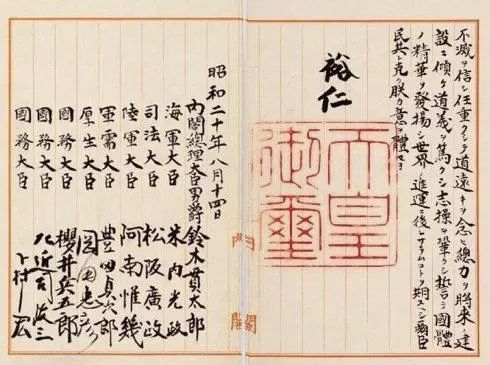 不滅ヲ信シ任重クシテ道遠キヲ念ヒ總力ヲ將來ノ建
設ニ傾ケ道義ヲ篤クシ志操ヲ鞏クシ誓テ國體
ノ精華ヲ發揚シ世界ノ進運ニ後レサラムコトヲ期スヘシ爾臣
民其レ克ク朕カ意ヲ體セヨ
裕仁
天皇
御璽
内閣
昭和二十年八月十四日
内閣總理大臣男爵鈴木貫太郎
海軍大臣 米内光政
司法大臣 松阪廣政
陸軍大臣 阿南惟幾
軍需大臣 豐田貞次郎
厚生大臣 岡田忠彦
國務大臣 櫻井兵五郎
國務大臣 左近司政三
國務大臣 下村宏